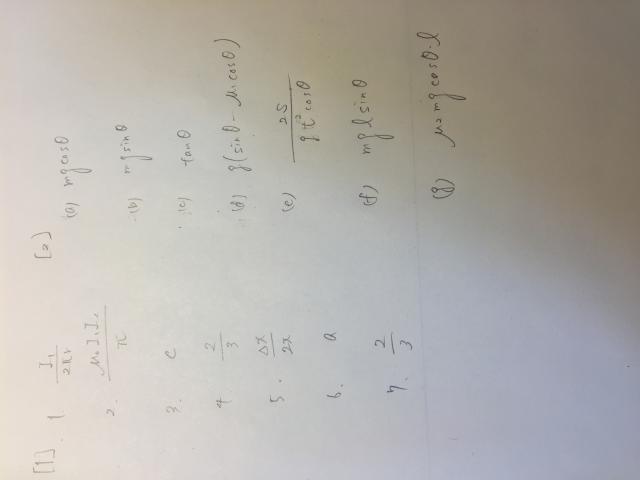 [1]
1. I₁/2πr
2. μ₀I₁I₂/π
3. e
4. 2/3
5. Δx/2x
6. a
7. 2/3
[2]
(a) mg cosθ
(b) mg sinθ
(c) tanθ
(d) g(sinθ - μ₁cosθ)
(e) 2S/gt²cosθ
(f) mg l sinθ
(g) μ₂mg cosθ·l